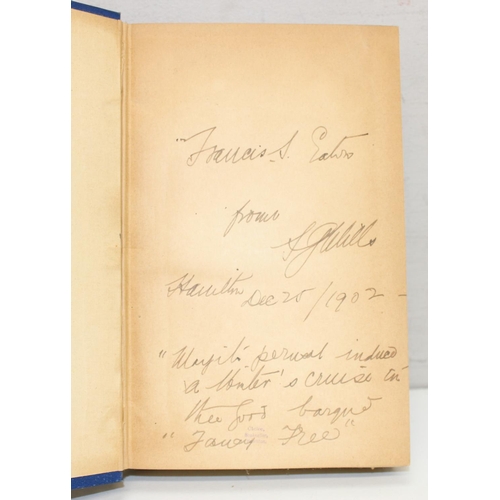 "Francis. S. Eaton
from
S G Mills
Hamilton
Dec 25/1902 -
"May its perusal induce
a Winter's cruise in
the good barque
"Fancy Free""